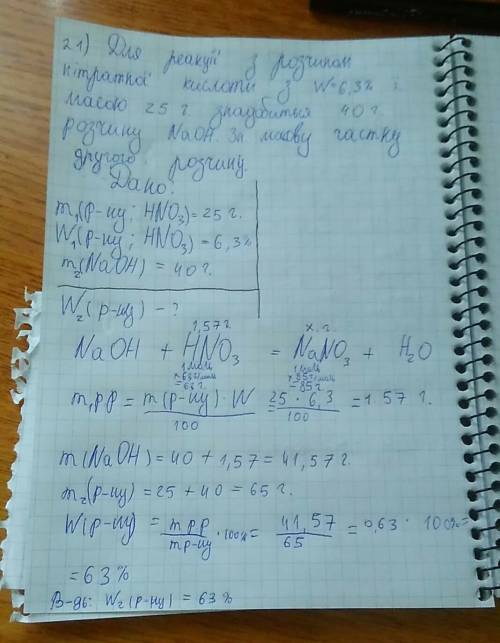 21) Для реакції з розчином
нітратної кислоти з W=6,3% і
масою 25 г. знадобиться 40 г.
розчину NaOH. Зн масову частку
другого розчину.
Дано:
m₁(р-ну; HNO₃) = 25 г.
W₁(р-ну; HNO₃) = 6,3%
m₂(NaOH) = 40 г.
W₂(р-ну) - ?
1,57 г x. г.
NaOH + HNO₃ = NaNO₃ + H₂O
1 моль 1 моль
×63 г/моль ×85 г/моль
=63 г. =85 г
m₁рр = m(р-ну) · W / 100 = 25 · 6,3 / 100 = 1.57 г.
m(NaOH) = 40 + 1,57 = 41,57 г.
m₂(р-ну) = 25 + 40 = 65 г.
W(р-ну) = mрр / mр-ну · 100% = 41,57 / 65 = 0,63 · 100% =
= 63%
В-дь: W₂(р-ну) = 63%